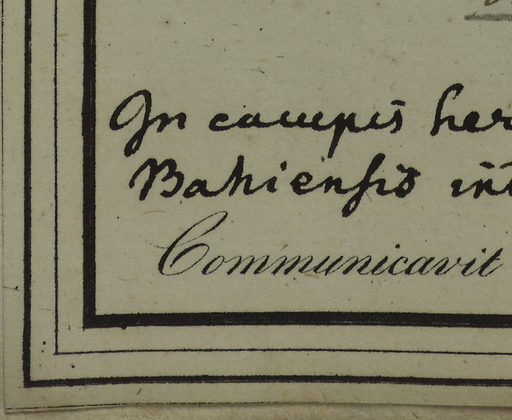 In campis her
Bahiensis int
Communicavit